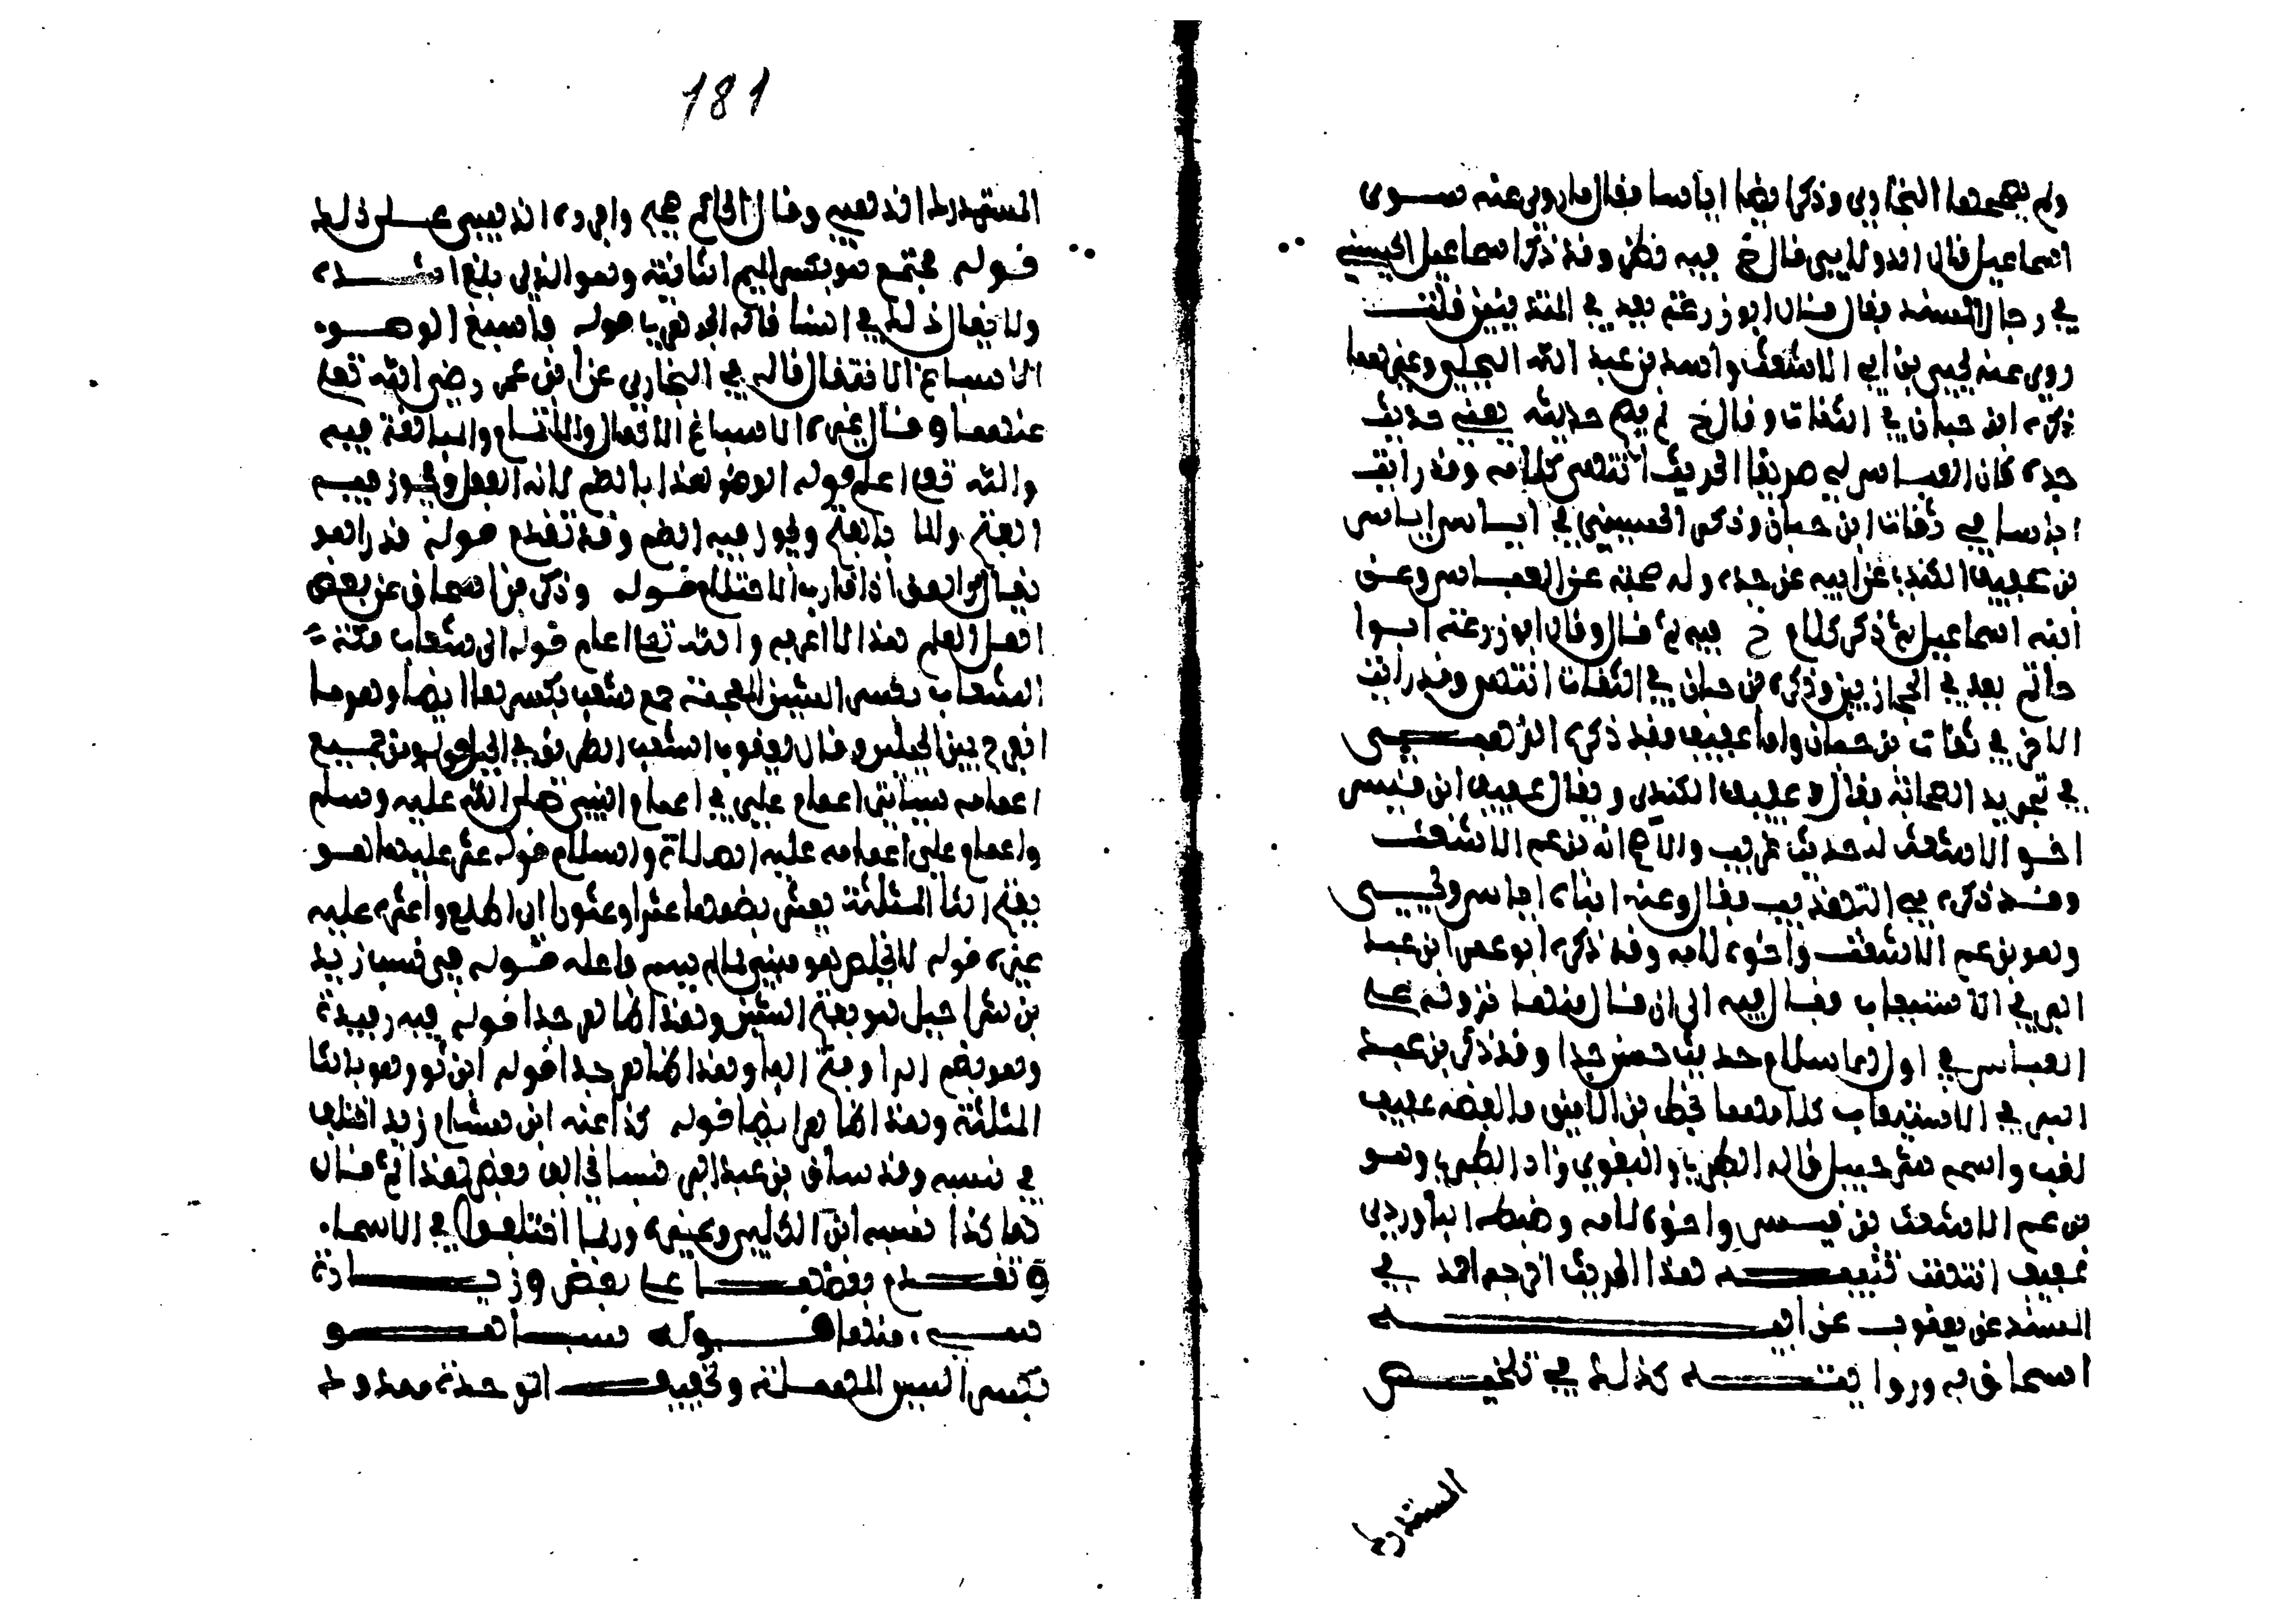 ولم يصححها البخاري وذكر ايضا اياسا فقال ما روى عنه سوى
اسماعيل قال الدولابي قال خ فيه نظر وقد ذكر اسماعيل الحسيني
في رجال المسند فقال قال ابو زرعة يعد في المدينيين قلت
روى عنه يحيى بن ابي الاشعث واسد بن عبد الله البجلي وغيرهما
ذكره ابن حبان في الثقات وقال خ لم يصح حديثه يعني حديث
جده كان العباس لي صديقا الحديث انتهى كلامه وقد رايت
اياسا في ثقات ابن حبان وذكر الحسيني في اياس اياس
بن عفيف الكندي عن ابيه عن جده وله صحبة عن العباس وعن
ابنه اسماعيل ثم ذكر كلام خ فيه ثم قال وقال ابو زرعة ابوا
حاتم يعد في الحجازيين وذكره بن حبان في الثقات انتهى وقد رايت
الاخر في ثقات بن حبان واما عفيف فقد ذكره الذهبي
في تجريد الصحابة فقال عفيف الكندي ويقال عفيف ابن قيس
اخو الاشعث له حديث غريب والاصح انه بن عم الاشعث
وقد ذكره في التذهيب فقال وعنه ابناه اياس ويحيى
وهو بن عم الاشعث واخوه لامه وقد ذكره ابو عمر ابن عبد
البر في الاستيعاب وقال فيه الى ان قال منها نزوله على
العباس في اول الاسلام حديث حسن جدا وقد ذكر بن عبد
البر في الاستيعاب كلامهما بخط بن الامين ما لفظه عفيف
لقب واسمه شرحبيل قاله الطبري والبغوي زاد الطبري وهو
بن عم الاشعث بن قيس واخوه لامه وضبطه الباوردي
عفيف انتهت تنبيه هذا الحديث اخرجه احمد في
المسند عن يعقوب عن ابيه
اسحاق به وروا يته كذلك في تلخيص
المستدرك
181
المستدرك ابن نعيم وقال الحاكم صحيح واقره الذهبي على ذلك
قوله مجتمع هو بكسر الميم الثانية وهو الذي بلغ اشده
ولا يقال ذلك في النسا قاله الجوهري قوله فاسبغ الوضوء
الاسباغ الانقا قاله في البخاري عن ابن عمر رضي الله تعلى
عنهما وقال غيره الاسباغ الاكمال والاتمام والمبالغة فيه
والله تعلى اعلم قوله الوضو هذا بالضم لانه الفعل ويجوز فيه
الفتح والما بالفتح ويجوز فيه الضم وقد تقدم قوله قد راهو
يقال راهق اذا قارب الاحتلام قوله وذكر بن اسحاق عن بعض
اهل العلم هذا لا اعرفه والله تعلى اعلم قوله الى شعاب مكة
الشعاب بكسر الشين المعجمة جمع شعب بكسرها ايضا وهو ما
انفرج بين الجبلين وقال يعقوب الشعب الطريق في الجبل قوله من جميع
اعمامه سياتي اعمام علي في اعمام النبي صلى الله عليه وسلم
واعمام علي اعمامه عليه الصلاة والسلام قوله عثر عليهما هو
بفتح الثا المثلثة يعثر بضمها عثرا وعثورا اي اطلع واعثره عليه
غيره قوله لا تخلص هو مبني لما لم يسم فاعله قوله في نسب زيد
بن شراحيل هو بفتح الشين وهذا ظاهر جدا قوله فيه رفيدة
وهو بضم الرا وفتح الفا وهذا ظاهر جدا قوله ابن ثور هو بالثا
المثلثة وهذا ظاهر ايضا قوله كذا عند ابن هشام زيد اختلف
في نسبه وقد ساق بن عبد البر نسبا خالف بعض هذا ثم قال
هكذا نسبه ابن الكلبي وغيره وربما اختلفوا في الاسماء
وتقديم بعضها على بعض وزيادة
شيء منها قوله سبا هو
بكسر السين المهملة وتخفيف الموحدة ممدود